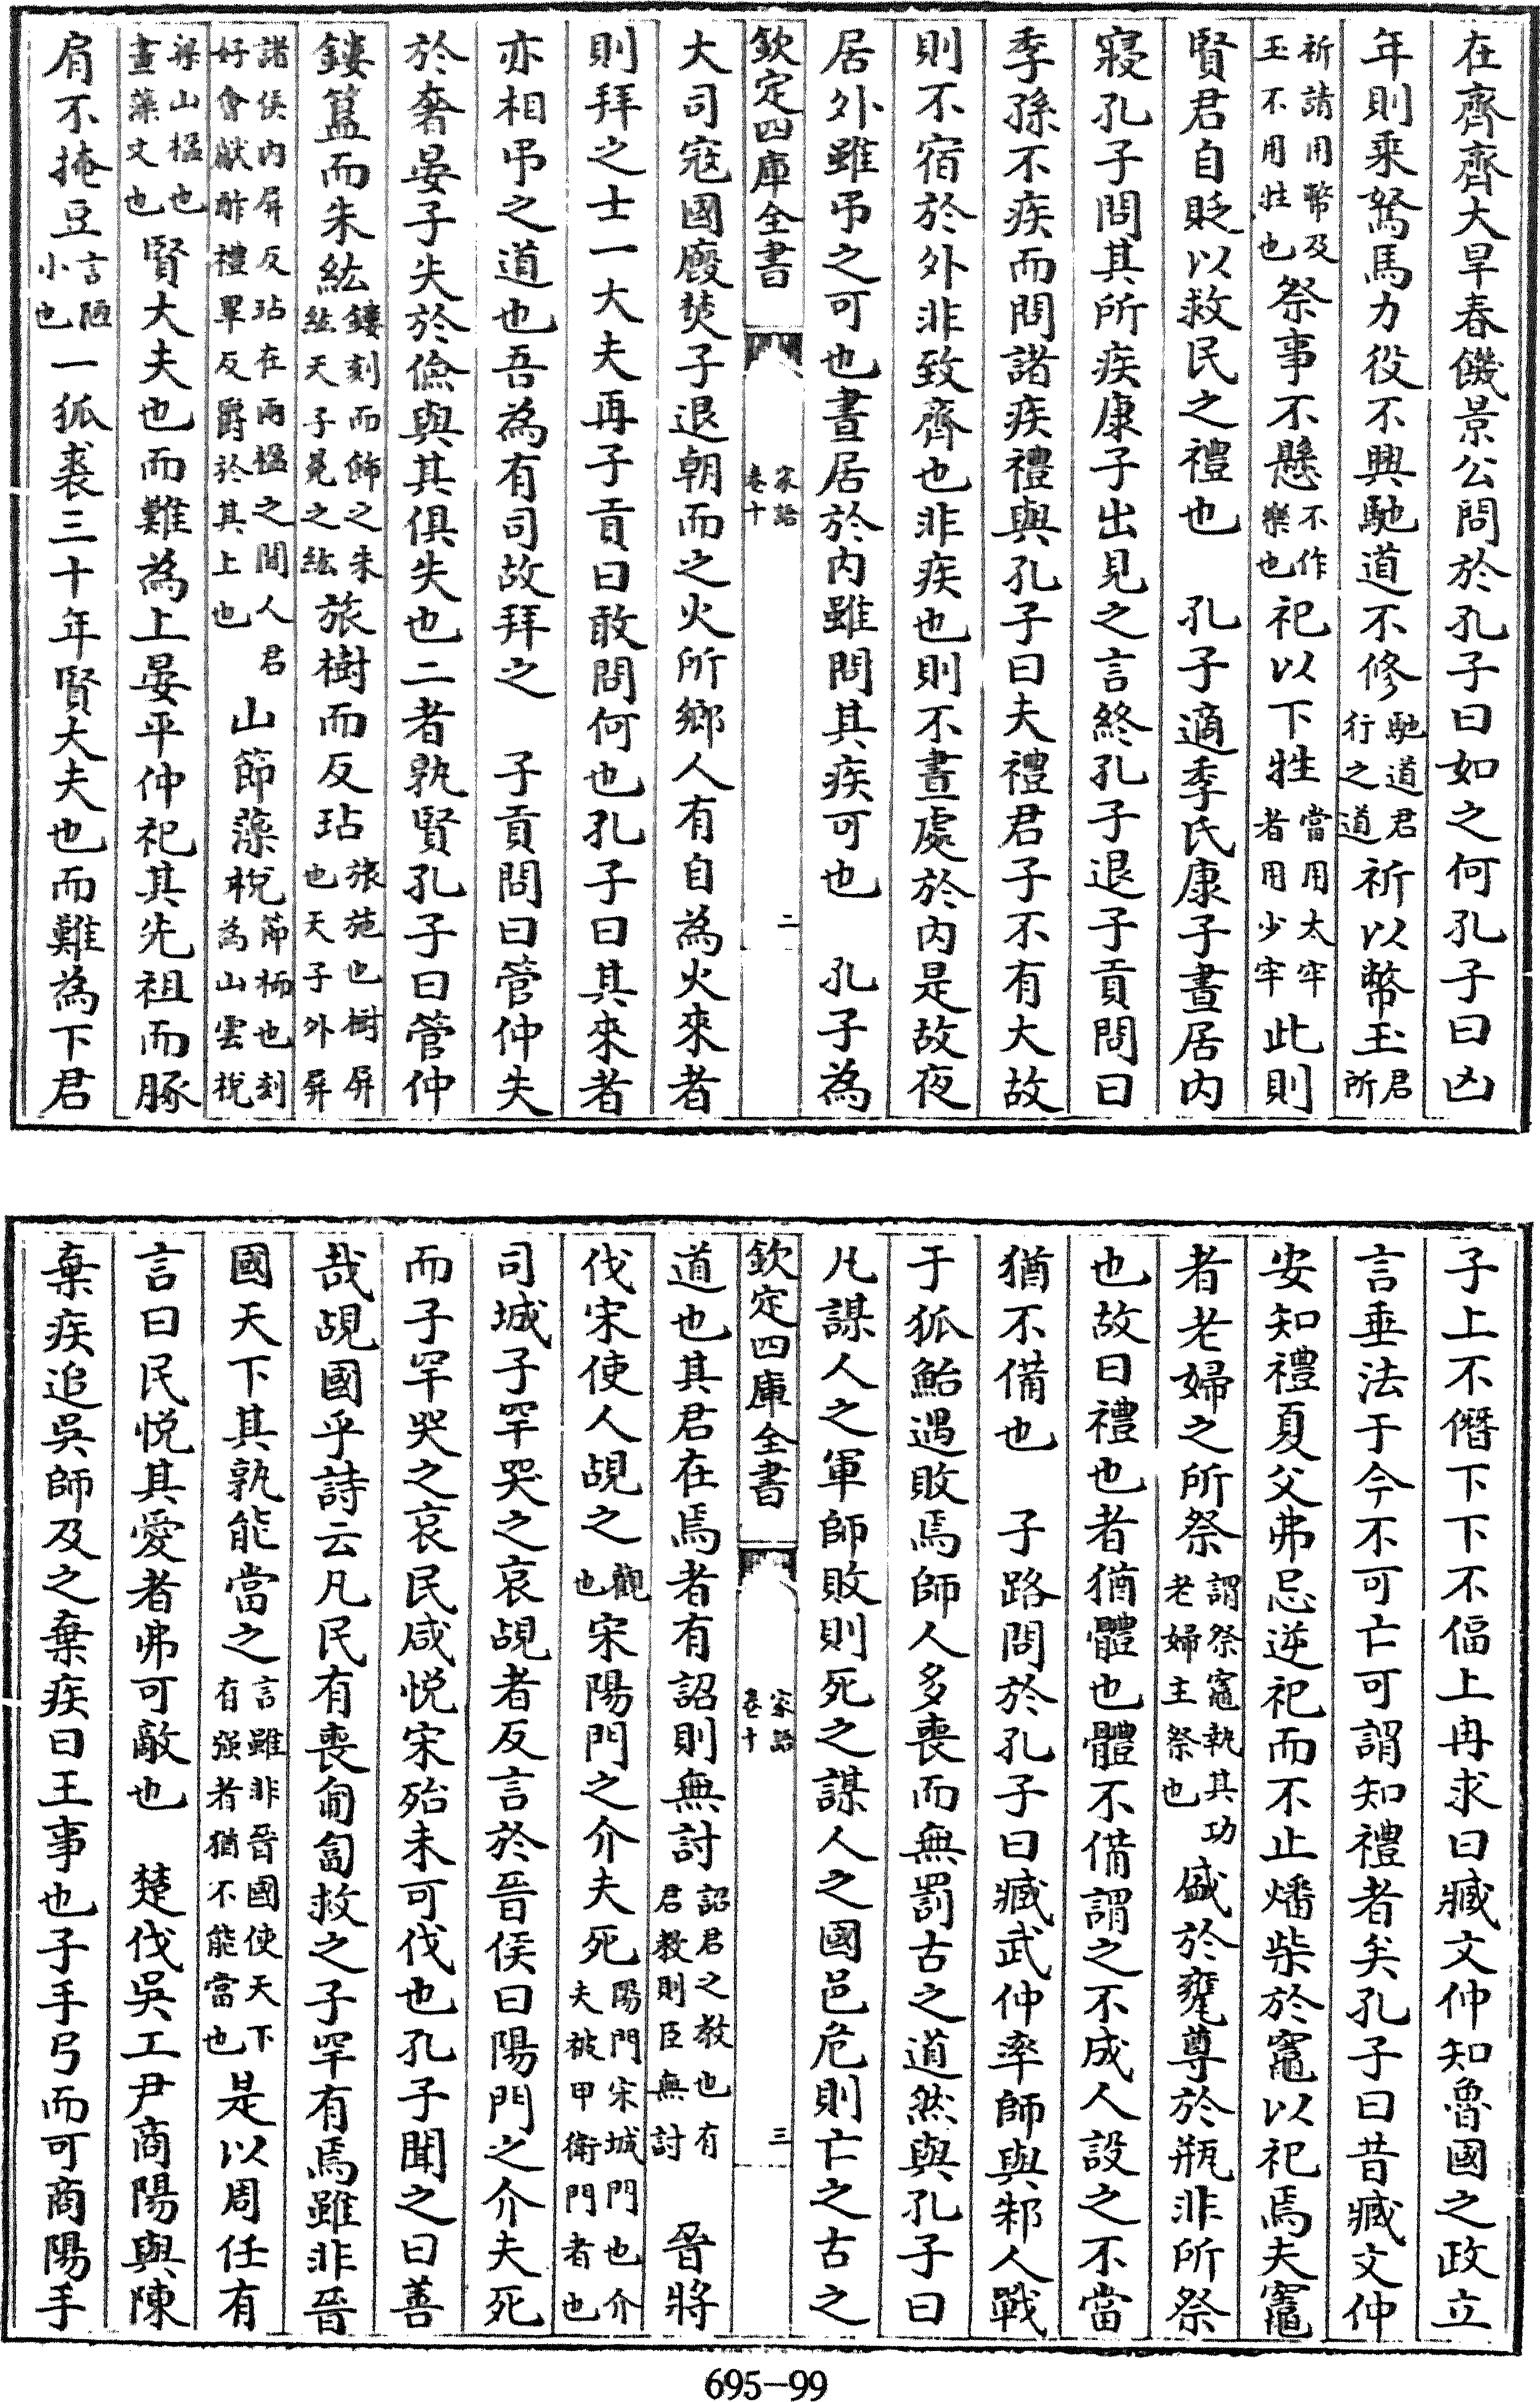 在齊齊大旱春饑景公問於孔子曰如之何孔子曰凶
年則乘駑馬力役不興馳道不修馳道君行之道祈以幣玉君所
祈請用幣及玉不用牲也祭事不懸不作樂也祀以下牲當用太牢者用少牢此則
賢君自貶以救民之禮也　孔子適季氏康子晝居內
寢孔子問其所疾康子出見之言終孔子退子貢問曰
季孫不疾而問諸疾禮與孔子曰夫禮君子不有大故
則不宿於外非致齊也非疾也則不晝處於內是故夜
居外雖弔之可也晝居於內雖問其疾可也　孔子為
欽定四庫全書　家語卷十　二
大司寇國廄焚子退朝而之火所鄉人有自為火來者
則拜之士一大夫再子貢曰敢問何也孔子曰其來者
亦相弔之道也吾為有司故拜之　子貢問曰管仲失
於奢晏子失於儉與其俱失也二者孰賢孔子曰管仲
鏤簋而朱紘鏤刻而飾之朱紘天子冕之紘旅樹而反玷旅施也樹屏也天子外屏
諸侯內屏反玷在兩楹之間人君好會獻酢禮畢反爵於其上也山節藻梲節栭也刻為山雲梲
梁山楹也畫藻文也賢大夫也而難為上晏平仲祀其先祖而豚
肩不掩豆言陋小也一狐裘三十年賢大夫也而難為下君
子上不僭下下不偪上冉求曰臧文仲知魯國之政立
言垂法于今不可亡可謂知禮者矣孔子曰昔臧文仲
安知禮夏父弗忌逆祀而不止燔柴於竈以祀焉夫竈
者老婦之所祭謂祭竈執其功老婦主祭也盛於甕尊於瓶非所祭
也故曰禮也者猶體也體不備謂之不成人設之不當
猶不備也　子路問於孔子曰臧武仲率師與邾人戰
于狐鮐遇敗焉師人多喪而無罰古之道然與孔子曰
凡謀人之軍師敗則死之謀人之國邑危則亡之古之
欽定四庫全書　家語卷十　三
道也其君在焉者有詔則無討詔君之教也有君教則臣無討　晉將
伐宋使人覘之觀也宋陽門之介夫死陽門宋城門也介夫被甲衛門者也
司城子罕哭之哀覘者反言於晉侯曰陽門之介夫死
而子罕哭之哀民咸悅宋殆未可伐也孔子聞之曰善
哉覘國乎詩云凡民有喪匍匐救之子罕有焉雖非晉
國天下其孰能當之言雖非晉國使天下有強者猶不能當也是以周任有
言曰民悅其愛者弗可敵也　楚伐吳工尹商陽與陳
棄疾追吳師及之棄疾曰王事也子手弓而可商陽手
695-99